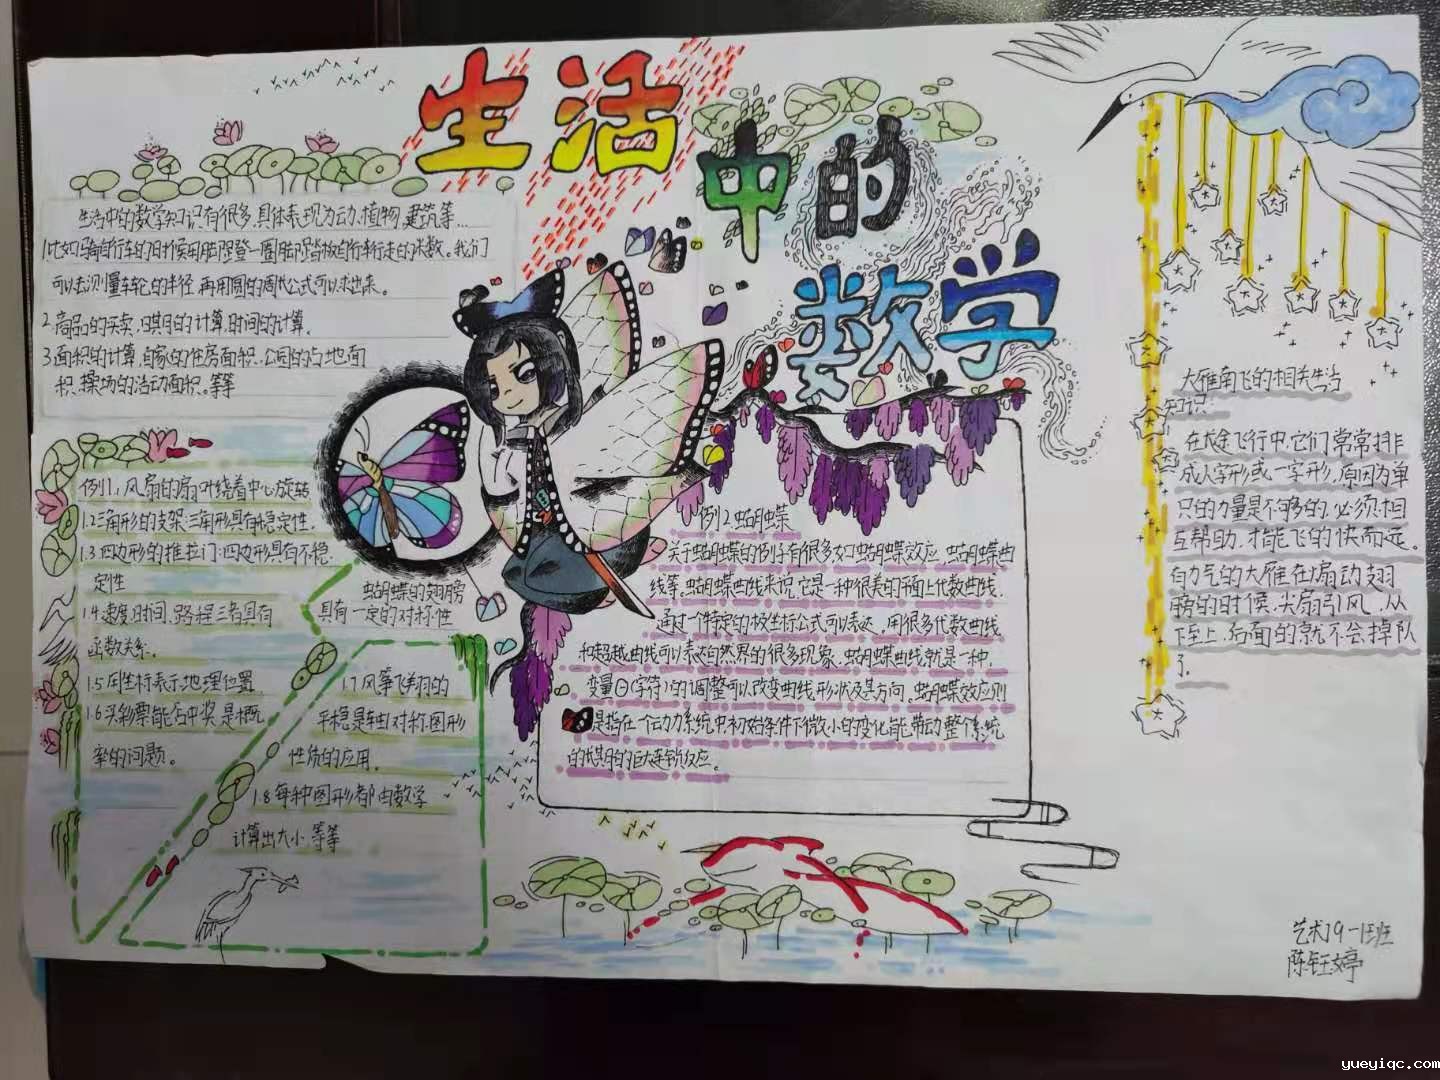 生活中的数学
生活中的数学知识有很多,具体表现为动、植物,建筑等…
1.比如骑自行车的时候用脚蹬登一圈脚踏板自行车行走的米数。我们
可以去测量车轮的半径,再用圆的周长公式可以求出来。
2.商品的买卖,日期的计算,时间的计算。
3.面积的计算,自家的住房面积.公园的占地面
积.操场的活动面积。等等
例1.1风扇的扇叶绕着中心旋转
1.2三角形的支架:三角形具有稳定性.
1.3四边形的推拉门:四边形具有不稳
定性
1.4.速度.时间.路程三者具有
函数关系.
1.5用坐标表示地理位置
1.6买彩票能否中奖是概
率的问题。
蝴蝶的翅膀
具有一定的对称性
1.7风筝飞翔的
平稳是轴对称图形
性质的应用.
1.8每种图形都由数学
计算出大小等等
例2.蝴蝶
关于蝴蝶的例子有很多如蝴蝶效应.蝴蝶曲
线等。蝴蝶曲线来说,它是一种很美的平面上代数曲线.
通过一个特定的极坐标公式可以表达,用很多代数曲线
和超越曲线可以表达自然界的很多现象.蝴蝶曲线就是一种,
变量θ(字符)的调整可以改变曲线形状及其方向.蝴蝶效应则
是指在一个动力系统中,初始条件下微小的变化能带动整个系统
的长期的巨大连锁反应。
大雁南飞的相关生活
知识.
在长途飞行中,它们常常排
成人字形或一字形.原因为单
只的力量是不够的.必须相
互帮助.才能飞的快而远。
有力气的大雁在扇动翅
膀的时候.尖扇引风.从
下至上.后面的就不会掉队
了.
艺术19-1班
陈钰婷
yueyiqc.com